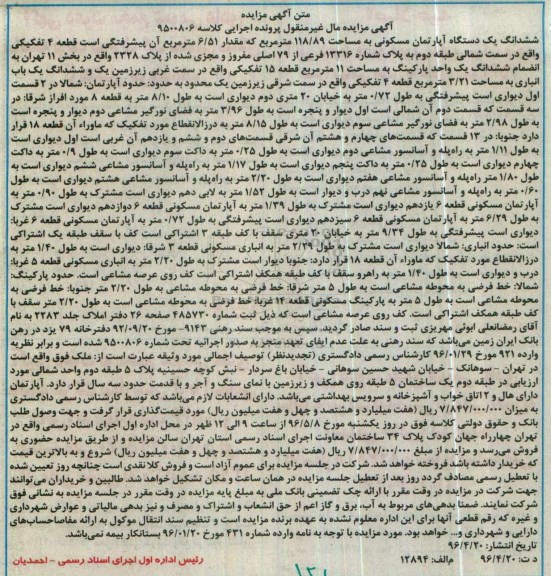 متن آگهی مزایده
آگهی مزایده مال غیرمنقول پرونده اجرایی کلاسه ۹۵۰۰۸۰۶
ششدانگ یک دستگاه آپارتمان مسکونی به مساحت ۱۱۸/۸۹ مترمربع که مقدار ۶/۵۱ مترمربع آن پیشرفتگی است قطعه ۴ تفکیکی
واقع در سمت شمالی طبقه دوم به پلاک شماره ۱۳۳۱۶ فرعی از ۷۹ اصلی مفروز و مجزی شده از پلاک ۲۳۲۸ واقع در بخش ۱۱ تهران به
انضمام ششدانگ یک واحد پارکینگ به مساحت ۱۱ مترمربع قطعه ۱۵ تفکیکی واقع در سمت غربی زیرزمین یک و ششدانگ یک باب
انباری به مساحت ۳/۲۱ مترمربع قطعه ۴ تفکیکی واقع در سمت شرقی زیرزمین یک محدود به حدود: حدود آپارتمان: شمالا در ۲ قسمت
اول دیواری است پیشرفتگی به طول ۰/۷۲ متر به خیابان ۲۰ متری دوم دیواری است به طول ۸/۱۰ متر به قطعه ۸ مورد افراز شرقا: در
سه قسمت که قسمت دوم آن شمالی است اول دیوار و پنجره است به طول ۳/۹۶ متر به فضای نورگیر مشاعی دوم دیوار و پنجره است
به طول ۲/۹۸ متر به فضای نورگیر مشاعی سوم دیواری است به طول ۸/۱۵ متر به درزالانقطاع مورد تفکیک که ماوراء آن قطعه ۱۸ قرار
دارد جنوبا: در ۱۳ قسمت که قسمت‌های چهارم و هشتم آن شرقی قسمت‌های دوم و ششم و یازدهم آن غربی است اول دیواری است
به طول ۱/۱۱ متر به راه‌پله و آسانسور مشاعی دوم دیواری است به طول ۰/۲۵ متر به داکت سوم دیواری است به طول ۰/۹ متر به داکت
چهارم دیواری است به طول ۰/۲۵ متر به داکت پنجم دیواری است به طول ۱/۱۷ متر به راه‌پله و آسانسور مشاعی ششم دیواری است به
طول ۱/۸۰ متر به راه‌پله و آسانسور مشاعی هفتم دیواری است به طول ۲/۲۰ متر به راه‌پله و آسانسور مشاعی هشتم دیواری است به طول
۰/۶۰ متر به راه‌پله و آسانسور مشاعی نهم درب و دیوار است به طول ۱/۵۲ متر به لابی دهم دیواری است مشترک به طول ۰/۹۰ متر به
آپارتمان مسکونی قطعه ۶ یازدهم دیواری است مشترک به طول ۱/۳۹ متر به آپارتمان مسکونی قطعه ۶ دوازدهم دیواری است مشترک
به طول ۶/۲۹ متر به آپارتمان مسکونی قطعه ۶ سیزدهم دیواری است پیشرفتگی به طول ۰/۷۲ متر به آپارتمان مسکونی قطعه ۶ غربا:
دیواری است پیشرفتگی به طول ۹/۳۴ متر به خیابان ۲۰ متری سقف با کف طبقه ۳ اشتراکی است کف با سقف طبقه یک اشتراکی
است: حدود انباری: شمالا دیواری است مشترک به طول ۲/۲۹ متر به انباری مسکونی قطعه ۳ شرقا: دیواری است به طول ۱/۴۰ متر به
درزالانقطاع مورد تفکیک که ماوراء آن قطعه ۱۸ قرار دارد: جنوبا دیوار است مشترک به طول ۲/۲۰ متر به انباری مسکونی قطعه ۵ غربا:
درب و دیواری است به طول ۱/۴۰ متر به راهرو سقف با کف طبقه همکف اشتراکی است کف روی عرصه مشاعی است. حدود پارکینگ:
شمالا: خط فرضی به محوطه مشاعی است به طول ۵ متر شرقا: خط فرضی به محوطه مشاعی به طول ۲/۲۰ متر جنوبا: خط فرضی به
محوطه مشاعی است به طول ۵ متر به پارکینگ مسکونی قطعه ۱۴ غربا: خط فرضی به محوطه مشاعی است به طول ۲/۲۰ متر سقف با
کف طبقه همکف اشتراکی است. کف روی عرصه مشاعی است که ذیل ثبت شماره ۴۸۵۷۳۰ صفحه ۲۶ دفتر املاک جلد ۲۲۸۳ به نام
آقای رمضانعلی ابوئی مهریزی ثبت و سند صادر گردید. سپس به موجب سند رهنی ۹۱۴۳- مورخ ۹۲/۰۹/۲۰ دفترخانه ۷۹ یزد در رهن
بانک ایران زمین می‌باشد که سند رهنی به علت عدم ایفای تعهد منجر به صدور اجرائیه تحت شماره ۹۵۰۰۸۰۶ شده است و برابر نظریه
وارده ۹۲۱ مورخ ۹۶/۰۱/۲۹ کارشناس رسمی دادگستری (تجدیدنظر) توصیف اجمالی مورد وثیقه عبارت است از: ملک فوق واقع است
در تهران - سوهانک - خیابان شهید حسین سوهانی - خیابان باغ سردار - نبش کوچه حسینیه پلاک ۵ طبقه دوم واحد شمالی مورد
ارزیابی در طبقه دوم یک ساختمان ۵ طبقه روی همکف و زیرزمین با نمای سنگ و آجر و با قدمت حدود سه سال قرار دارد. آپارتمان
دارای هال و ۲ اتاق خواب و آشپزخانه و سرویس بهداشتی می‌باشد. دارای انشعابات لازم می‌باشد که توسط کارشناس رسمی دادگستری
به میزان ۷/۸۴۷/۰۰۰/۰۰۰ ریال (هفت میلیارد و هشتصد و چهل و هفت میلیون ریال) مورد قیمت‌گذاری قرار گرفت و جهت وصول طلب
بانک و حقوق دولتی کلاسه فوق در روز یکشنبه مورخ ۹۶/۵/۸ از ساعت ۹ الی ۱۲ ظهر در محل اداره اول اجرای اسناد رسمی واقع در
تهران چهارراه جهان کودک پلاک ۳۴ ساختمان معاونت اجرای اسناد رسمی استان تهران سالن مزایده و از طریق مزایده حضوری به
فروش می‌رسد و مزایده از مبلغ ۷/۸۴۷/۰۰۰/۰۰۰ ریال (هفت میلیارد و هشتصد و چهل و هفت میلیون ریال) شروع و به بالاترین قیمت
که خریدار داشته باشد فروخته خواهد شد. شرکت در جلسه مزایده برای عموم آزاد است و فروش کلا نقدی است چنانچه روز تعیین شده
با تعطیل رسمی مصادف گردد روز بعد از تعطیل جلسه مزایده در همان ساعت و مکان تشکیل خواهد شد. طالبین و خریداران می‌توانند
جهت شرکت در مزایده در وقت مقرر با ارائه چک تضمینی بانک ملی به مبلغ پایه مزایده در وقت مقرر در جلسه مزایده به نشانی فوق
شرکت نمایند. ضمنا بدهی‌های مربوط به آب، برق و گاز اعم از حق انشعاب و اشتراک و مصرف و نیز بدهی مالیاتی و عوارض شهرداری
و غیره که رقم قطعی آنها برای این اداره معلوم نشده به عهده برنده مزایده است و تنظیم سند انتقال موکول به ارائه مفاصاحساب‌های
دارایی و شهرداری و... خواهد بود. مورد مزایده با توجه به نامه وارده شماره ۴۳۱ مورخ ۹۶/۰۱/۲۰ بستانکار بیمه نمی‌باشد.
تاریخ انتشار: ۹۶/۴/۲۰
د ت: ۹۶/۴/۲۰ م‌الف: ۱۲۸۹۴ رئیس اداره اول اجرای اسناد رسمی - احمدیان